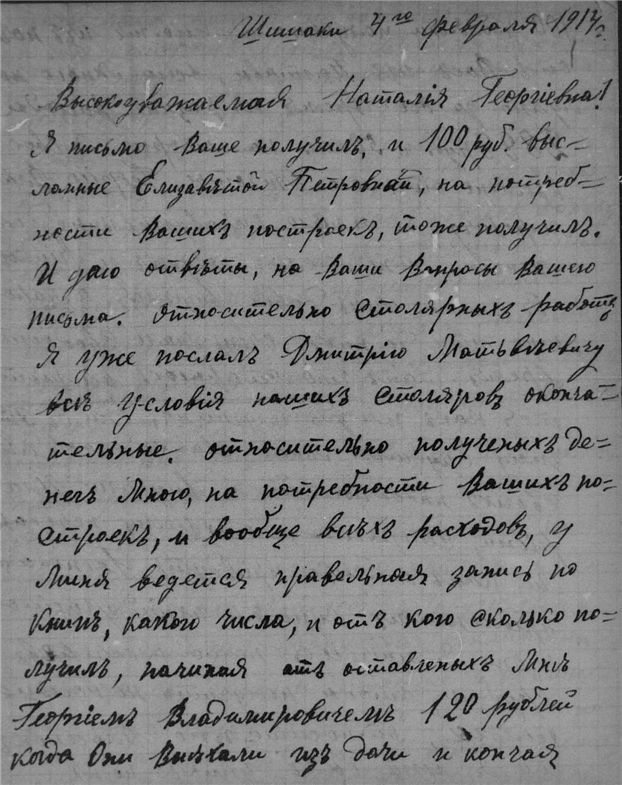 Шишаки 4го февраля 1914 г.
Высокоуважаемая Наталія Георгіевна!
Я письмо Ваше получилъ, и 100 руб. выс-
ланные Елизавѣтой Петровной, на потреб-
ности Вашихъ построекъ, тоже получилъ.
И даю отвѣты, на Ваши Вопросы Вашего
письма. Относительно столярныхъ работъ
Я уже послалъ Дмитрію Матвѣевичу
всѣ условія нашихъ столяровъ оконча-
тельные. относительно полученыхъ де-
негъ Мною, на потребности Вашихъ по-
строекъ, и вообще всѣхъ расходовъ, у
Миня ведется правельная запись по
книгѣ, какого числа, и отъ кого сколько по-
лучилъ, начиная отъ оставленыхъ Мнѣ
Георгіемъ Владимировичемъ 120 рублей
когда Они Выѣхали изъ дачи и кончая